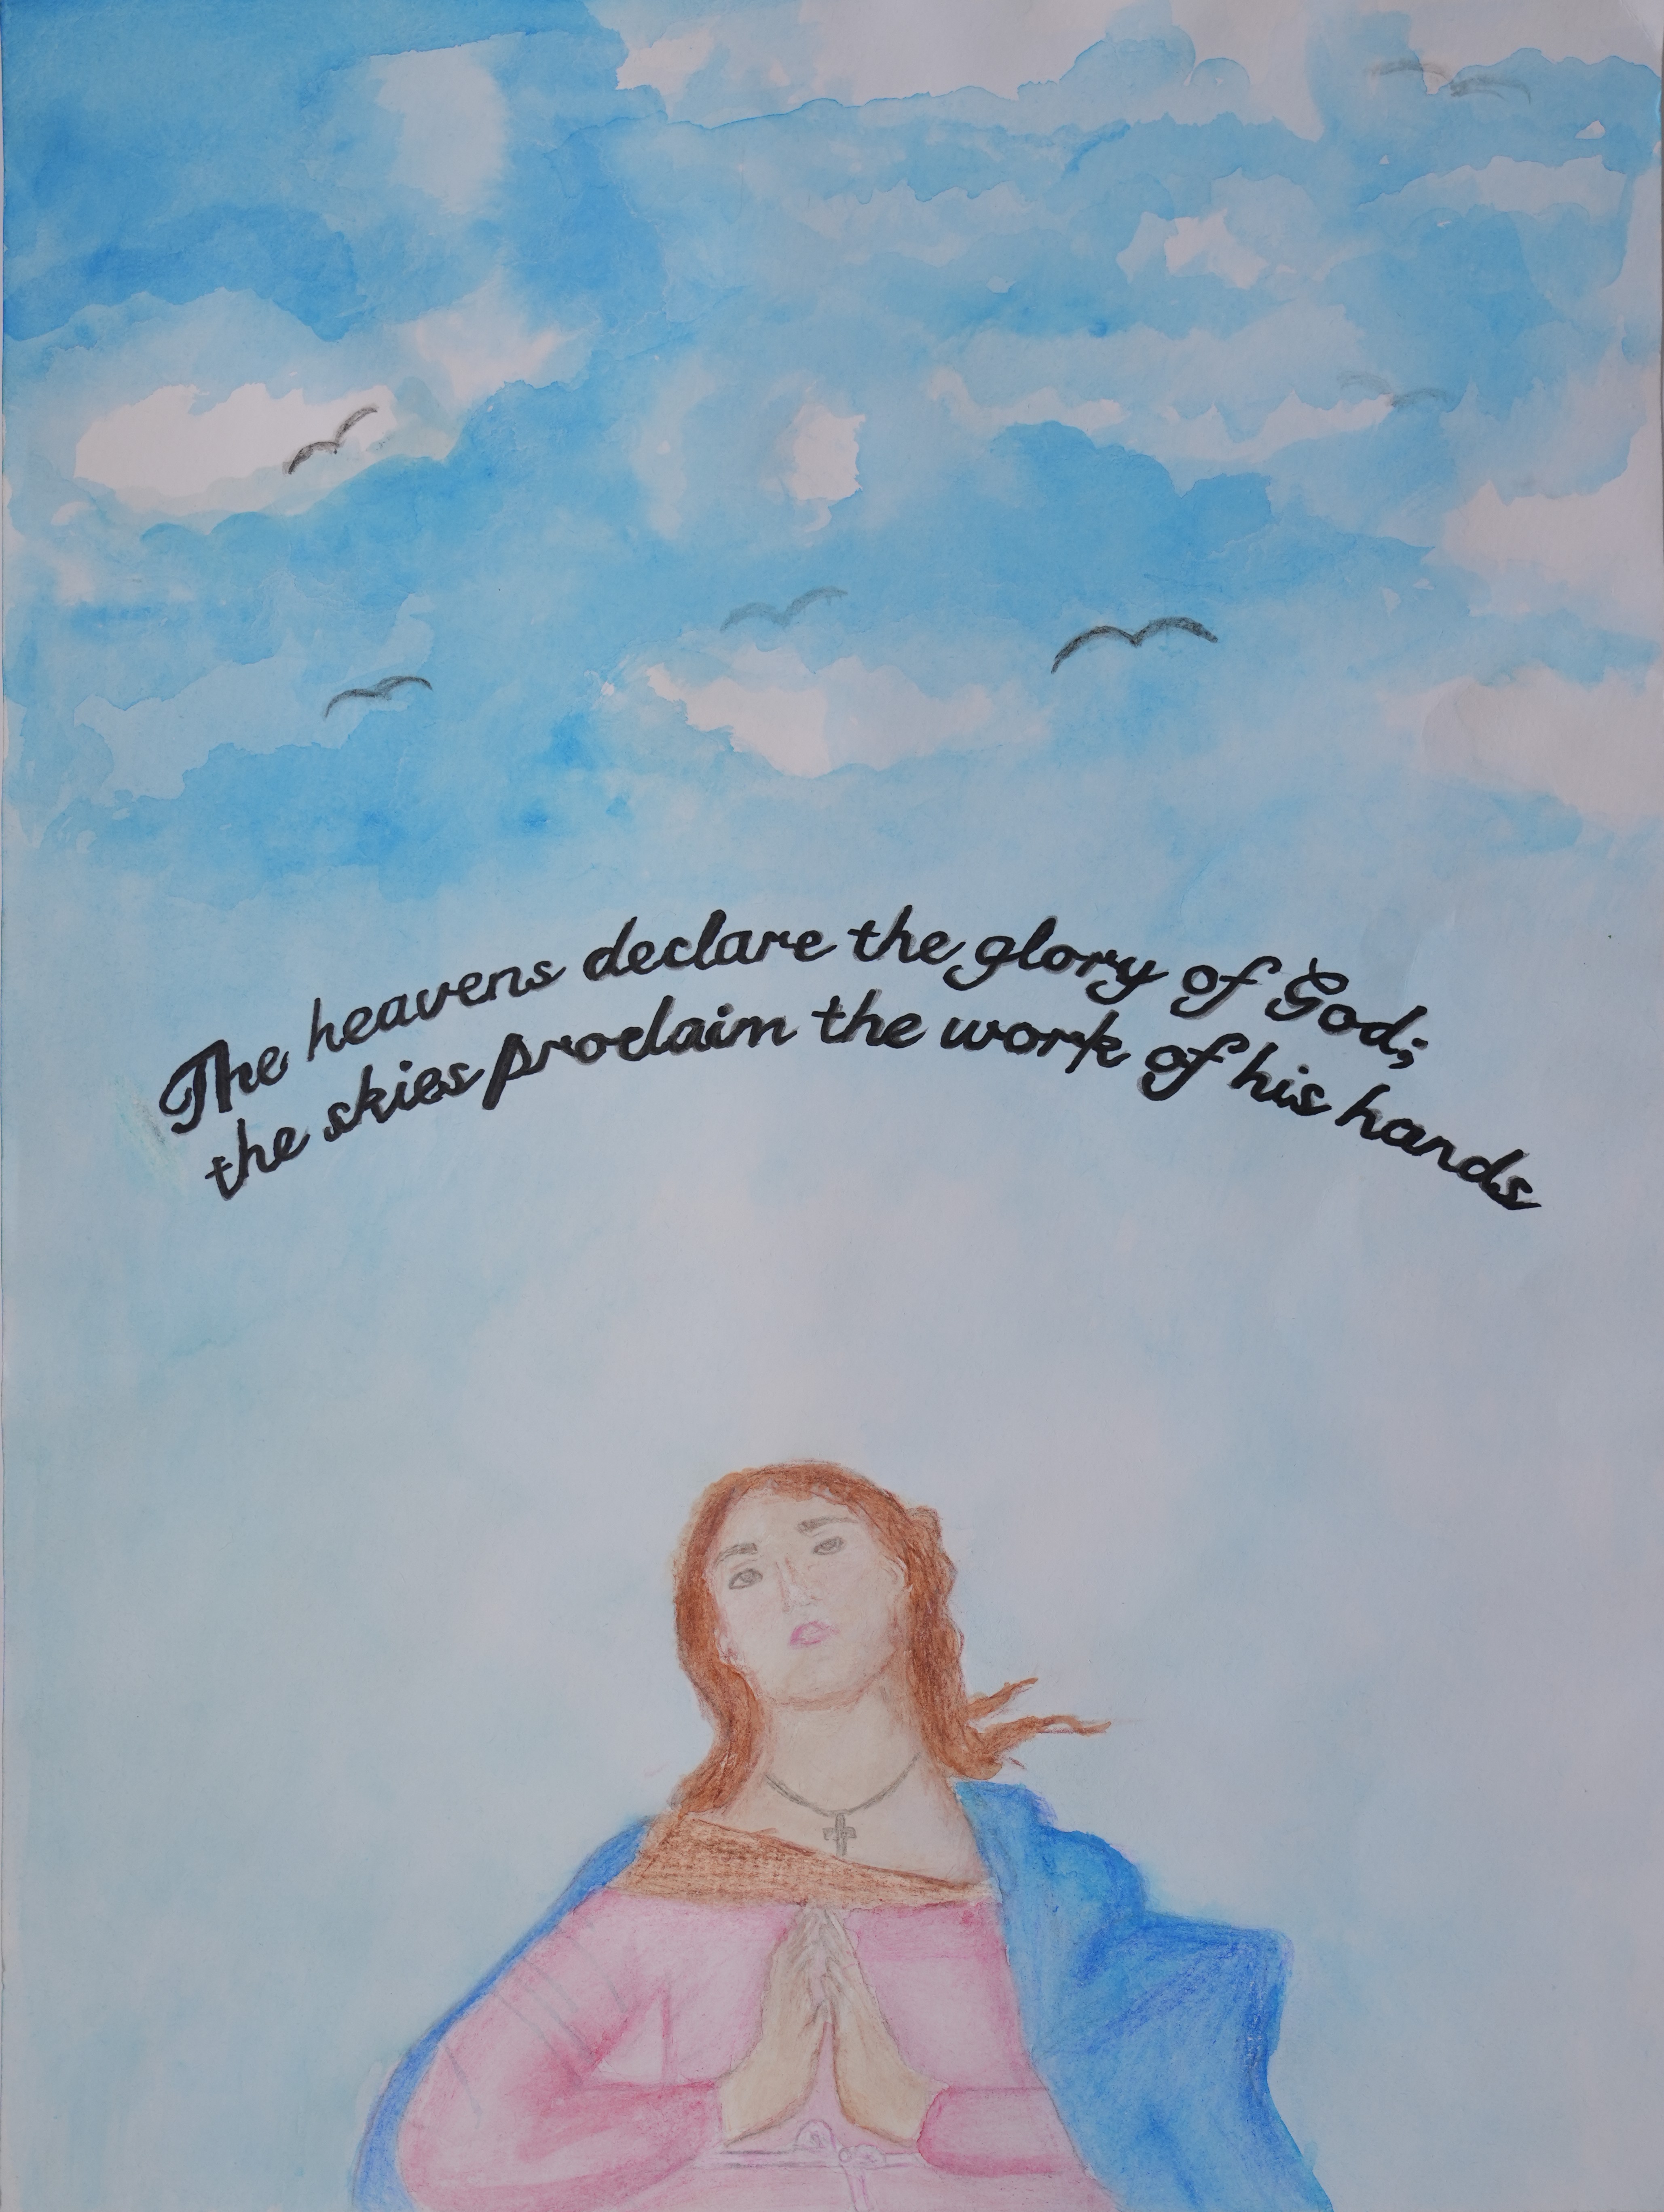 The heavens declare the glory of God;
the skies proclaim the work of his hands